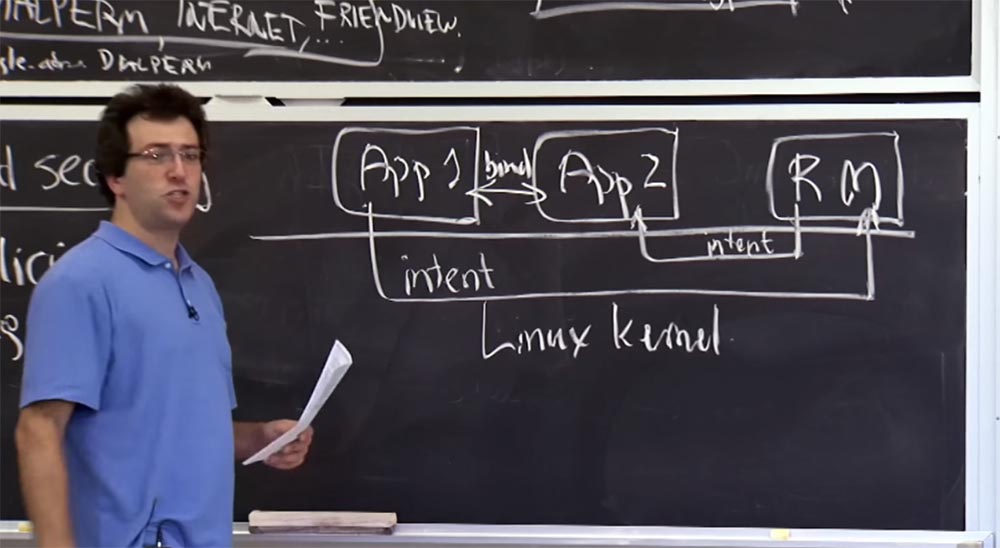 DIALPERM, INTERNET, ... FRIENDVIEW.
DIALPERM
App 1
bind
App 2
RM
intent
intent
Linux kernel